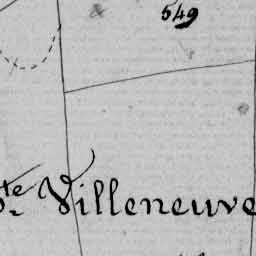 549
te Villeneuve